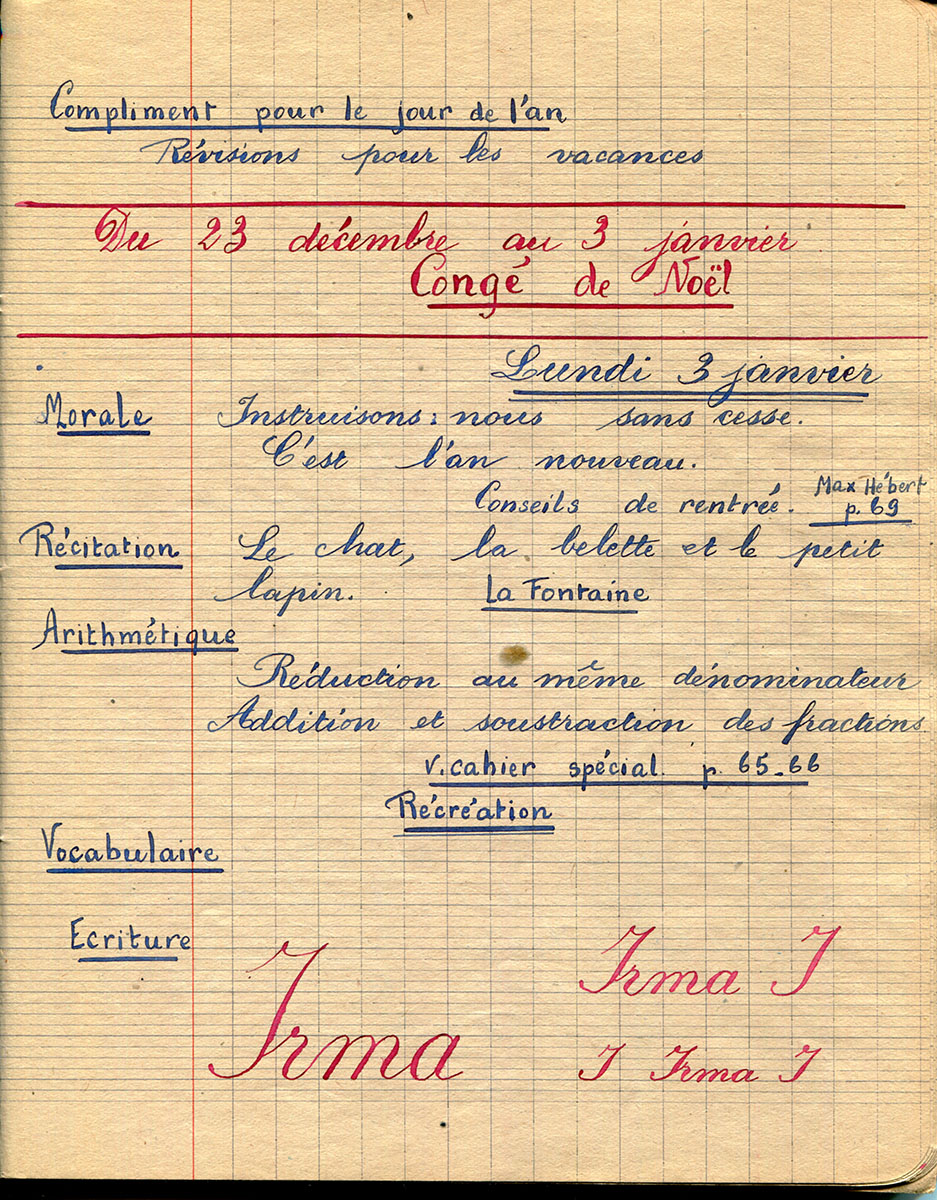 Compliment pour le jour de l'an
Révisions pour les vacances
Du 23 décembre au 3 janvier
Congé de Noël
Lundi 3 janvier
Morale Instruisons-nous sans cesse.
C'est l'an nouveau.
Conseils de rentrée. Max Hébert p. 69
Récitation Le chat, la belette et le petit
lapin. La Fontaine
Arithmétique
Réduction au même dénominateur
Addition et soustraction des fractions
v. cahier spécial. p. 65-66
Récréation
Vocabulaire
Ecriture
Irma I
Irma
I Irma I